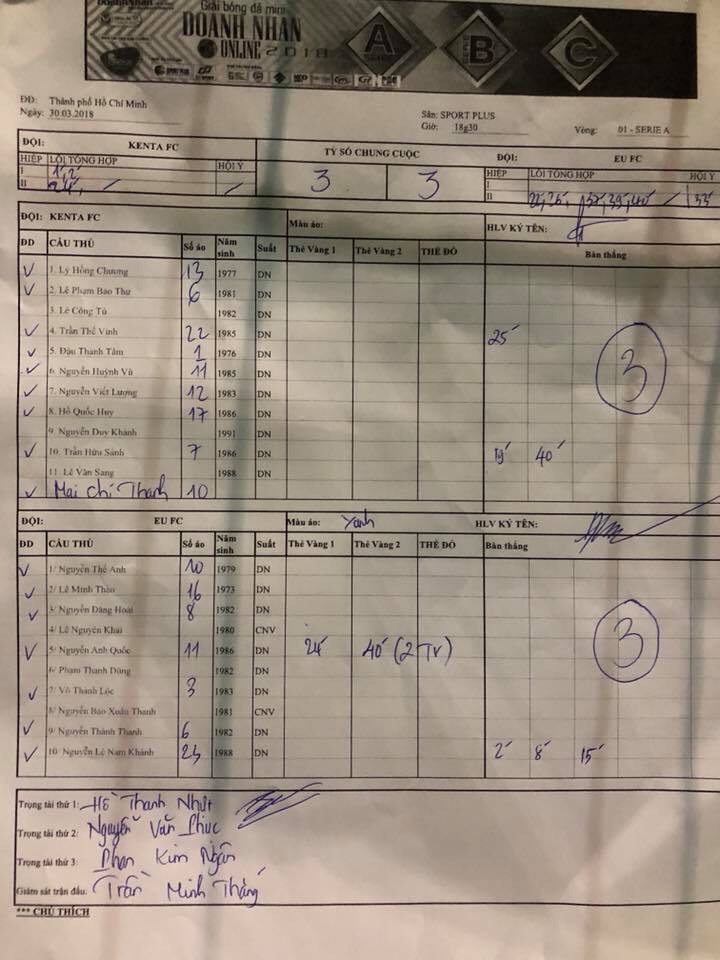 Giải bóng đá mini
DOANH NHÂN
ONLINE 2018
A B C
ĐĐ: Thành phố Hồ Chí Minh
Ngày: 30.03.2018
Sân: SPORT PLUS
Giờ: 18g30 Vòng: 01 - SERIE A
ĐỘI: KENTA FC TỶ SỐ CHUNG CUỘC ĐỘI: EU FC
HIỆP LỖI TỔNG HỢP HỘI Ý 3 3 HIỆP LỖI TỔNG HỢP HỘI Ý
I 1, 2 I
II 24, II 22, 26, 37, 39, 40 33
ĐỘI: KENTA FC Màu áo: HLV KÝ TÊN:
ĐD CẦU THỦ Số áo Năm sinh Suất Thẻ Vàng 1 Thẻ Vàng 2 THẺ ĐỎ Bàn thắng
1. Lý Hồng Chương 13 1977 DN
2. Lê Phạm Bao Thư 6 1981 DN
3. Lê Công Tú 1982 DN
4. Trần Thế Vinh 22 1985 DN 25
5. Đậu Thanh Tâm 1 1976 DN
6. Nguyễn Huỳnh Vũ 11 1985 DN 3
7. Nguyễn Viết Lượng 12 1983 DN
8. Hồ Quốc Huy 17 1986 DN
9. Nguyễn Duy Khánh 1991 DN
10. Trần Hữu Sánh 7 1986 DN 19 40
11. Lê Văn Sang 1988 DN
Mai Chí Thanh 10
ĐỘI: EU FC Màu áo: Xanh HLV KÝ TÊN:
ĐD CẦU THỦ Số áo Năm sinh Suất Thẻ Vàng 1 Thẻ Vàng 2 THẺ ĐỎ Bàn thắng
1/ Nguyễn Thế Anh 10 1979 DN
2/ Lê Minh Thảo 16 1973 DN
3/ Nguyễn Đăng Hoài 8 1982 DN
4/ Lê Nguyên Khai 1980 CNV
5/ Nguyễn Anh Quốc 11 1986 DN 24 40 (2 Tr) 3
6/ Phạm Thanh Dũng 1982 DN
7/ Võ Thành Lộc 3 1983 DN
8/ Nguyễn Bảo Xuân Thanh 1981 CNV
9/ Nguyễn Thành Thanh 6 1982 DN
10/ Nguyễn Lê Nam Khánh 23 1988 DN 2 8 15
Trọng tài thứ 1: Hồ Thanh Nhựt
Trọng tài thứ 2: Nguyễn Văn Phúc
Trọng tài thứ 3: Phan Kim Ngân
Giám sát trận đấu: Trần Minh Thắng
*** CHÚ THÍCH